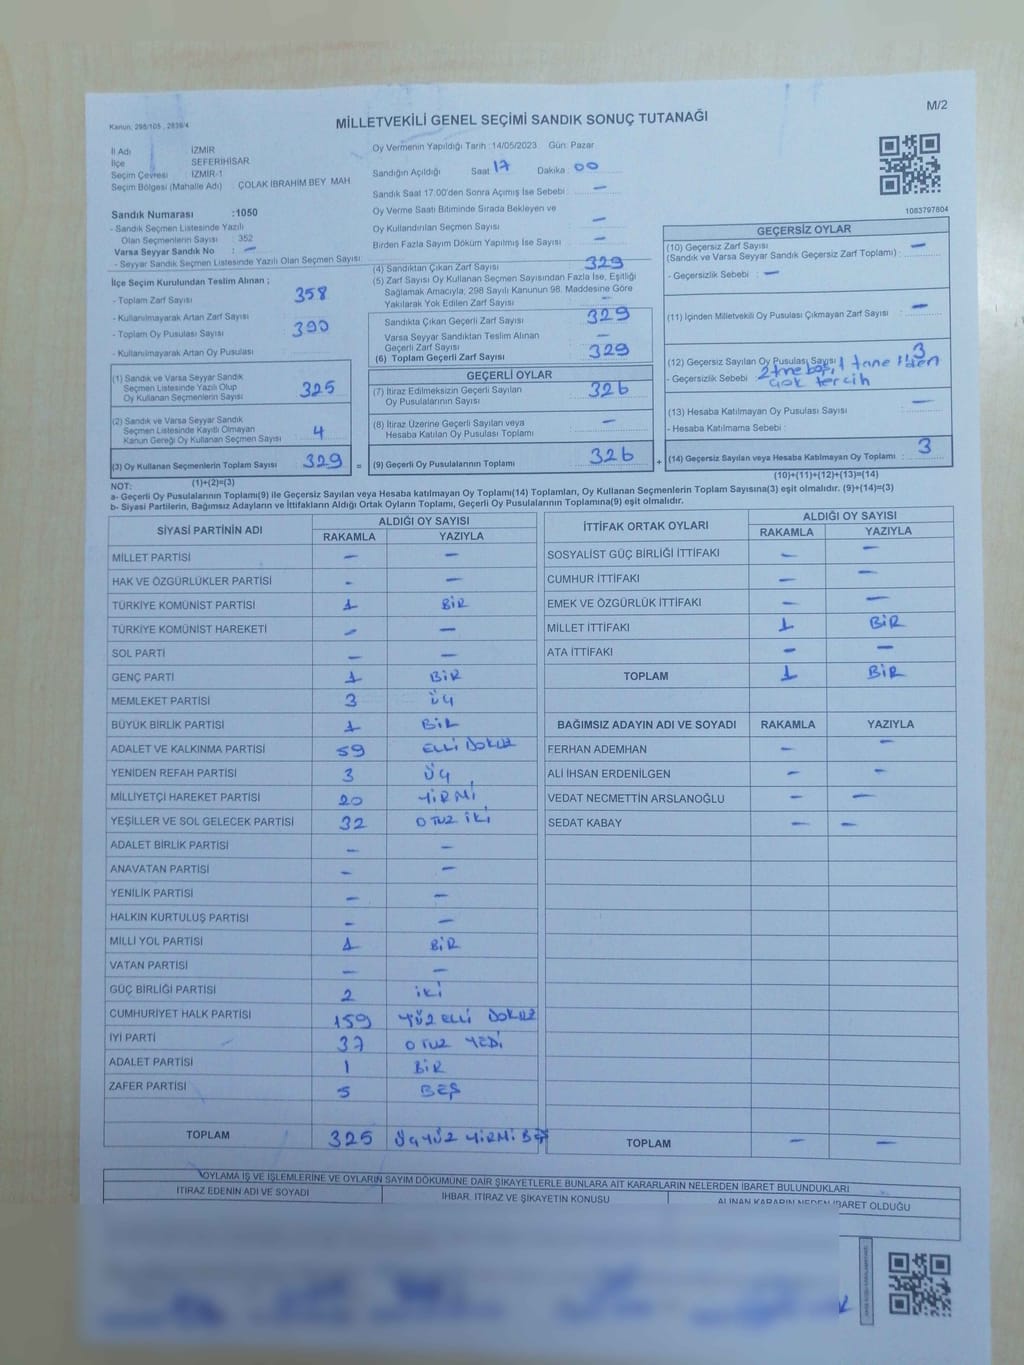 M/2
Kanun: 298/105 , 2839/4
MİLLETVEKİLİ GENEL SEÇİMİ SANDIK SONUÇ TUTANAĞI
1083797804
İl Adı : İZMİR
İlçe : SEFERİHİSAR
Seçim Çevresi : İZMİR-1
Seçim Bölgesi (Mahalle Adı) : ÇOLAK İBRAHİM BEY MAH.
Sandık Numarası :1050
- Sandık Seçmen Listesinde Yazılı
Olan Seçmenlerin Sayısı : 352
Varsa Seyyar Sandık No : –
- Seyyar Sandık Seçmen Listesinde Yazılı Olan Seçmen Sayısı:
İlçe Seçim Kurulundan Teslim Alınan ;
- Toplam Zarf Sayısı : 358
- Kullanılmayarak Artan Zarf Sayısı :
- Toplam Oy Pusulası Sayısı : 390
- Kullanılmayarak Artan Oy Pusulası :
(1) Sandık ve Varsa Seyyar Sandık
Seçmen Listesinde Yazılı Olup
Oy Kullanan Seçmenlerin Sayısı : 325
(2) Sandık ve Varsa Seyyar Sandık
Seçmen Listesinde Kayıtlı Olmayan
Kanun Gereği Oy Kullanan Seçmen Sayısı : 4
(3) Oy Kullanan Seçmenlerin Toplam Sayısı : 329
(1)+(2)=(3)
Oy Vermenin Yapıldığı Tarih :14/05/2023 Gün: Pazar
Sandığın Açıldığı Saat : 17 Dakika : 00
Sandık Saat 17.00'den Sonra Açımış İse Sebebi : –
Oy Verme Saati Bitiminde Sırada Bekleyen ve
Oy Kullandırılan Seçmen Sayısı : –
Birden Fazla Sayım Döküm Yapılmış İse Sayısı : –
(4) Sandıktan Çıkan Zarf Sayısı : 329
(5) Zarf Sayısı Oy Kullanan Seçmen Sayısından Fazla İse, Eşitliği
Sağlamak Amacıyla; 298 Sayılı Kanunun 98. Maddesine Göre
Yakılarak Yok Edilen Zarf Sayısı : –
Sandıkta Çıkan Geçerli Zarf Sayısı : 329
Varsa Seyyar Sandıktan Teslim Alınan
Geçerli Zarf Sayısı : –
(6) Toplam Geçerli Zarf Sayısı : 329
GEÇERLİ OYLAR
(7) İtiraz Edilmeksizin Geçerli Sayılan
Oy Pusulalarının Sayısı : 326
(8) İtiraz Üzerine Geçerli Sayılan veya
Hesaba Katılan Oy Pusulası Toplamı : –
= (9) Geçerli Oy Pusulalarının Toplamı : 326
GEÇERSİZ OYLAR
(10) Geçersiz Zarf Sayısı : –
(Sandık ve Varsa Seyyar Sandık Geçersiz Zarf Toplamı)
- Geçersizlik Sebebi : –
(11) İçinden Milletvekili Oy Pusulası Çıkmayan Zarf Sayısı : –
(12) Geçersiz Sayılan Oy Pusulası Sayısı : 3
- Geçersizlik Sebebi : 2 tane boş, 1 tane 1'den
çok tercih
(13) Hesaba Katılmayan Oy Pusulası Sayısı : –
- Hesaba Katılmama Sebebi :
+ (14) Geçersiz Sayılan veya Hesaba Katılmayan Oy Toplamı : 3
(10)+(11)+(12)+(13)=(14)
NOT:
a- Geçerli Oy Pusulalarının Toplamı(9) ile Geçersiz Sayılan veya Hesaba katılmayan Oy Toplamı(14) Toplamları, Oy Kullanan Seçmenlerin Toplam Sayısına(3) eşit olmalıdır. (9)+(14)=(3)
b- Siyasi Partilerin, Bağımsız Adayların ve İttifakların Aldığı Ortak Oyların Toplamı, Geçerli Oy Pusulalarının Toplamına(9) eşit olmalıdır.
SİYASİ PARTİNİN ADI ALDIĞI OY SAYISI
RAKAMLA YAZIYLA
MİLLET PARTİSİ – –
HAK VE ÖZGÜRLÜKLER PARTİSİ – –
TÜRKİYE KOMÜNİST PARTİSİ 1 BİR
TÜRKİYE KOMÜNİST HAREKETİ – –
SOL PARTİ – –
GENÇ PARTİ 1 BİR
MEMLEKET PARTİSİ 3 ÜÇ
BÜYÜK BİRLİK PARTİSİ 1 BİR
ADALET VE KALKINMA PARTİSİ 59 ELLİ DOKUZ
YENİDEN REFAH PARTİSİ 3 ÜÇ
MİLLİYETÇİ HAREKET PARTİSİ 20 YİRMİ
YEŞİLLER VE SOL GELECEK PARTİSİ 32 OTUZ İKİ
ADALET BİRLİK PARTİSİ – –
ANAVATAN PARTİSİ – –
YENİLİK PARTİSİ – –
HALKIN KURTULUŞ PARTİSİ – –
MİLLİ YOL PARTİSİ 1 BİR
VATAN PARTİSİ – –
GÜÇ BİRLİĞİ PARTİSİ 2 İKİ
CUMHURİYET HALK PARTİSİ 159 YÜZ ELLİ DOKUZ
İYİ PARTİ 37 OTUZ YEDİ
ADALET PARTİSİ 1 BİR
ZAFER PARTİSİ 5 BEŞ
TOPLAM 325 ÜÇYÜZ YİRMİ BEŞ
İTTİFAK ORTAK OYLARI ALDIĞI OY SAYISI
RAKAMLA YAZIYLA
SOSYALİST GÜÇ BİRLİĞİ İTTİFAKI – –
CUMHUR İTTİFAKI – –
EMEK VE ÖZGÜRLÜK İTTİFAKI – –
MİLLET İTTİFAKI 1 BİR
ATA İTTİFAKI – –
TOPLAM 1 BİR
BAĞIMSIZ ADAYIN ADI VE SOYADI RAKAMLA YAZIYLA
FERHAN ADEMHAN – –
ALİ İHSAN ERDENİLGEN – –
VEDAT NECMETTİN ARSLANOĞLU – –
SEDAT KABAY – –
TOPLAM – –
OYLAMA İŞ VE İŞLEMLERİNE VE OYLARIN SAYIM DÖKÜMÜNE DAİR ŞİKAYETLERLE BUNLARA AİT KARARLARIN NELERDEN İBARET BULUNDUKLARI
İTİRAZ EDENİN ADI VE SOYADI İHBAR, İTİRAZ VE ŞİKAYETİN KONUSU ALINAN KARARIN NEDEN İBARET OLDUĞU